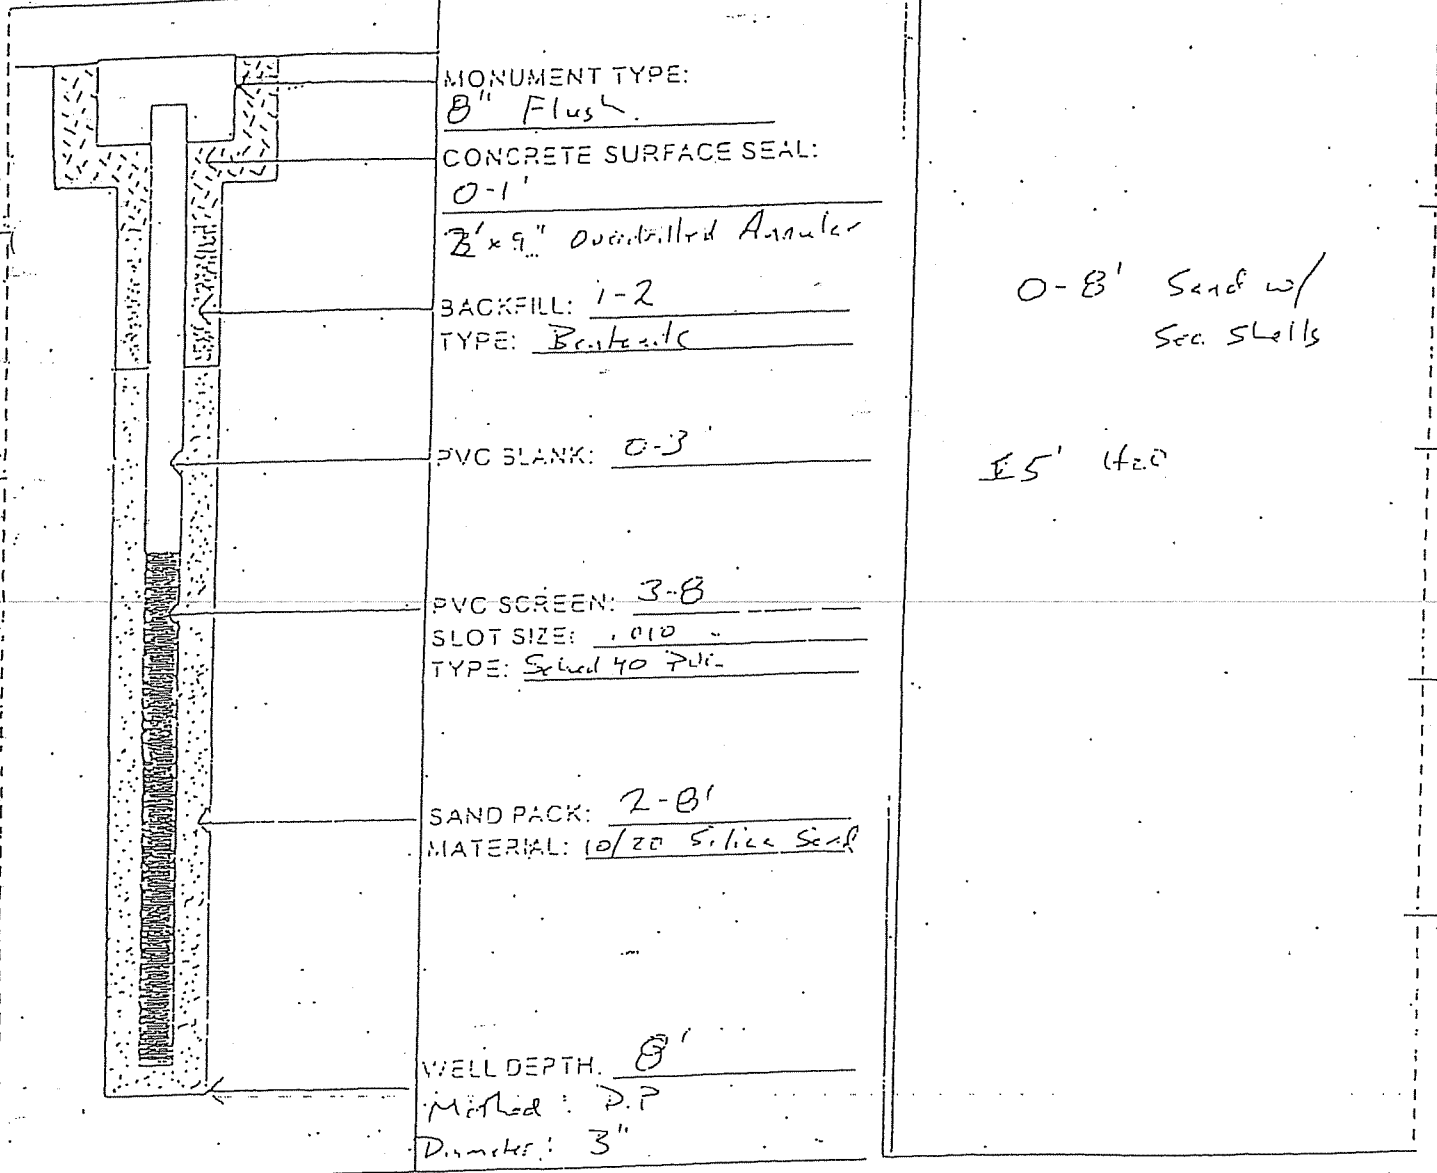 MONUMENT TYPE:
8" Flush
CONCRETE SURFACE SEAL:
0-1'
x 9" Overdrilled Annular
BACKFILL: 1-2
TYPE: Bentonite
PVC BLANK: 0-3'
PVC SCREEN: 3-8
SLOT SIZE: .010
TYPE: Sched 40 PVC
SAND PACK: 2-8'
MATERIAL: 10/20 Silica Sand
WELL DEPTH. 8'
Method: D.P
Diameter: 3"
0-8' Sand w/
Sea Shells
5' H20